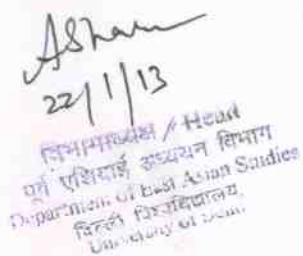 22/1/13
विभागाध्यक्ष / Head
पूर्व एशियाई अध्ययन विभाग
Department of East Asian Studies
दिल्ली विश्वविद्यालय
University of Delhi